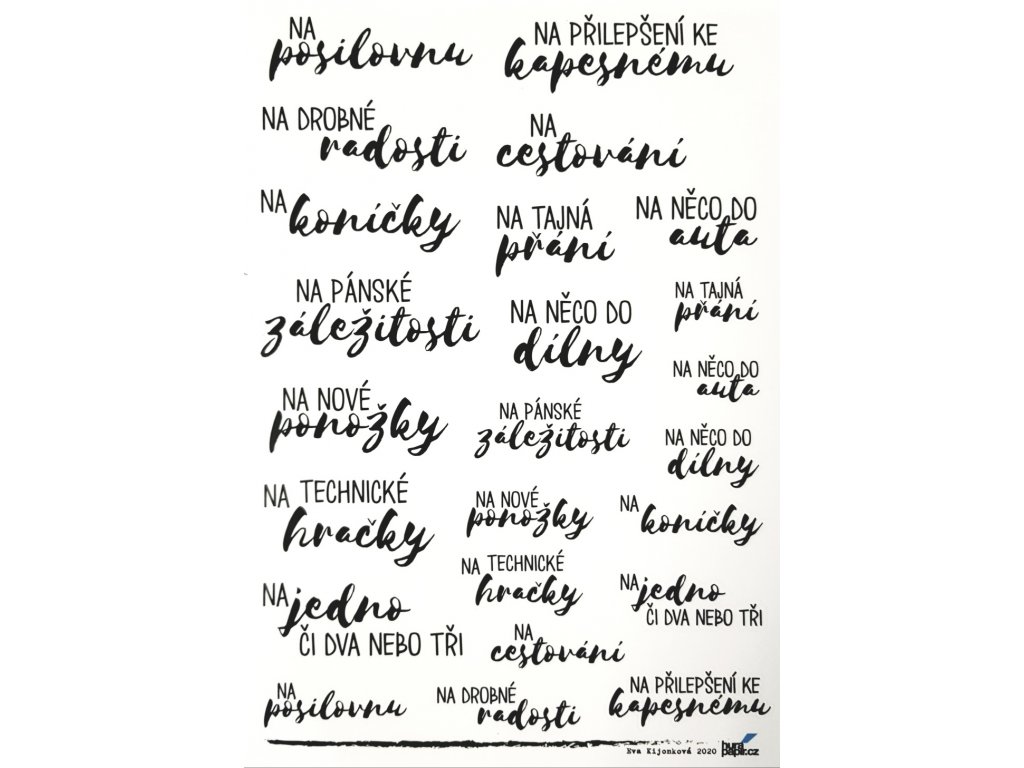 NA
posilovnu
NA PŘILEPŠENÍ KE
kapesnému
NA DROBNÉ
radosti
NA
cestování
NA koníčky
NA TAJNÁ
přání
NA NĚCO DO
auta
NA PÁNSKÉ
záležitosti
NA NĚCO DO
dílny
NA TAJNÁ
přání
NA NĚCO DO
auta
NA NOVÉ
ponožky
NA PÁNSKÉ
záležitosti
NA NĚCO DO
dílny
NA TECHNICKÉ
hračky
NA NOVÉ
ponožky
NA koníčky
NA TECHNICKÉ
hračky
NA jedno
ČI DVA NEBO TŘI
NA jedno
ČI DVA NEBO TŘI
NA
cestování
NA
posilovnu
NA DROBNÉ
radosti
NA PŘILEPŠENÍ KE
kapesnému
Eva Kijonková 2020
papir.cz